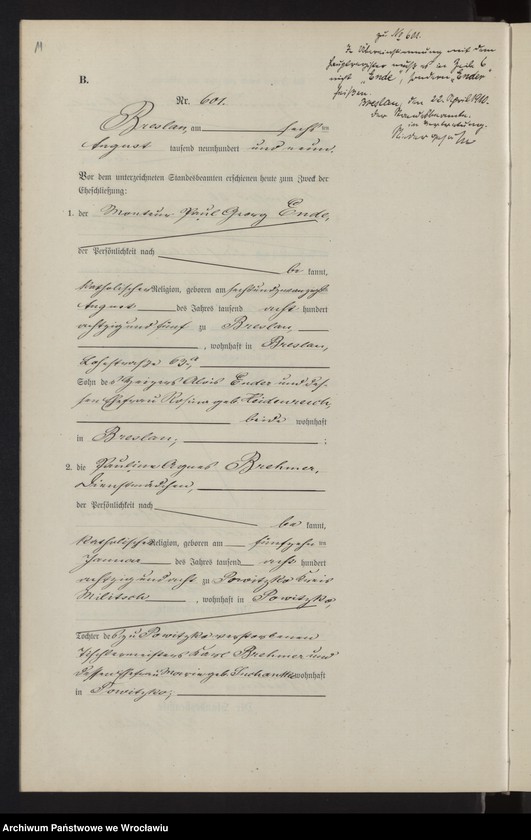 11
zu № 601.
In Übereinstimmung mit dem
Hauptregister muß es in Zeile 6
nicht "Ende", sondern "Ender"
heißen.
Breslau, den 22. April 1910.
der Standesbeamte.
in Vertretung.
B.
Nr. 601.
Breslau, am sechsten
August tausend neunhundert und neun.
Vor dem unterzeichneten Standesbeamten erschienen heute zum Zweck der
Eheschließung:
1. der Monteur Paul Georg Ende,
der Persönlichkeit nach
be kannt,
katholischer Religion, geboren am sechsundzwanzigsten
August des Jahres tausend acht hundert
achtzig und fünf zu Breslau,
, wohnhaft in Breslau,
Lohestraße 63a,
Sohn des Heizers Alois Ender und des-
sen Ehefrau Rosina geb. Heidenreich,
beide wohnhaft
in Breslau; ;
2. die Pauline Agnes Brehmer,
Dienstmädchen,
der Persönlichkeit nach
be kannt,
katholischer Religion, geboren am fünfzehnten
Januar des Jahres tausend acht hundert
achtzig und acht zu Powitzko Kreis
Militsch , wohnhaft in Powitzko,
Tochter des zu Powitzko verstorbenen
Tischlermeisters Karl Brehmer und
dessen Ehefrau Marie geb. wohnhaft
in Powitzko;
Archiwum Państwowe we Wrocławiu